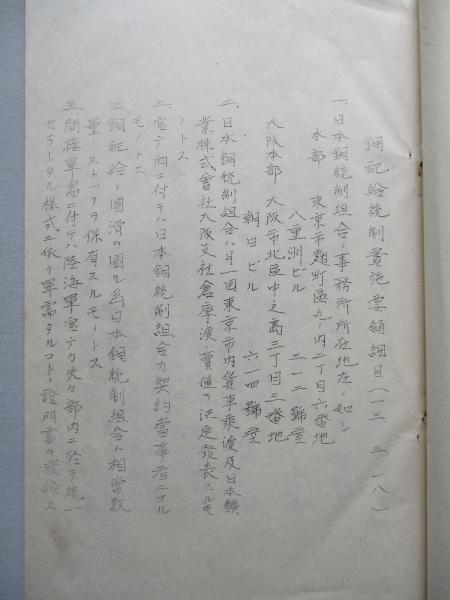 銅配給統制實施要領細目(一三、三、一八)
一、日本銅統制組合ノ事務所所在地左ノ如シ
本部 東京市麹町區丸ノ内二丁目六番地
八重洲ビル 三一二號室
大阪本部 大阪市北區中之島三丁目三番地
朝日ビル 六一四號室
二、日本銅統制組合ハ月一回東京市内貨車乘渡及日本鑛
業株式會社大阪支社倉庫渡ノ賣値ヲ決定發表スルモ
ノトス
三、官廳向ニ付テハ日本銅統制組合カ契約當事者ニナル
モノトス
四、銅配給ノ圓滑ヲ圖ル爲日本銅統制組合ハ相當數
量ノストックヲ保有スルモノトス
五、間接軍需ニ付テハ陸海軍官廳カ夫々部内ニ於テ統一
セラレタル株式ニ依リ軍需タルコトノ證明書ヲ發給ス